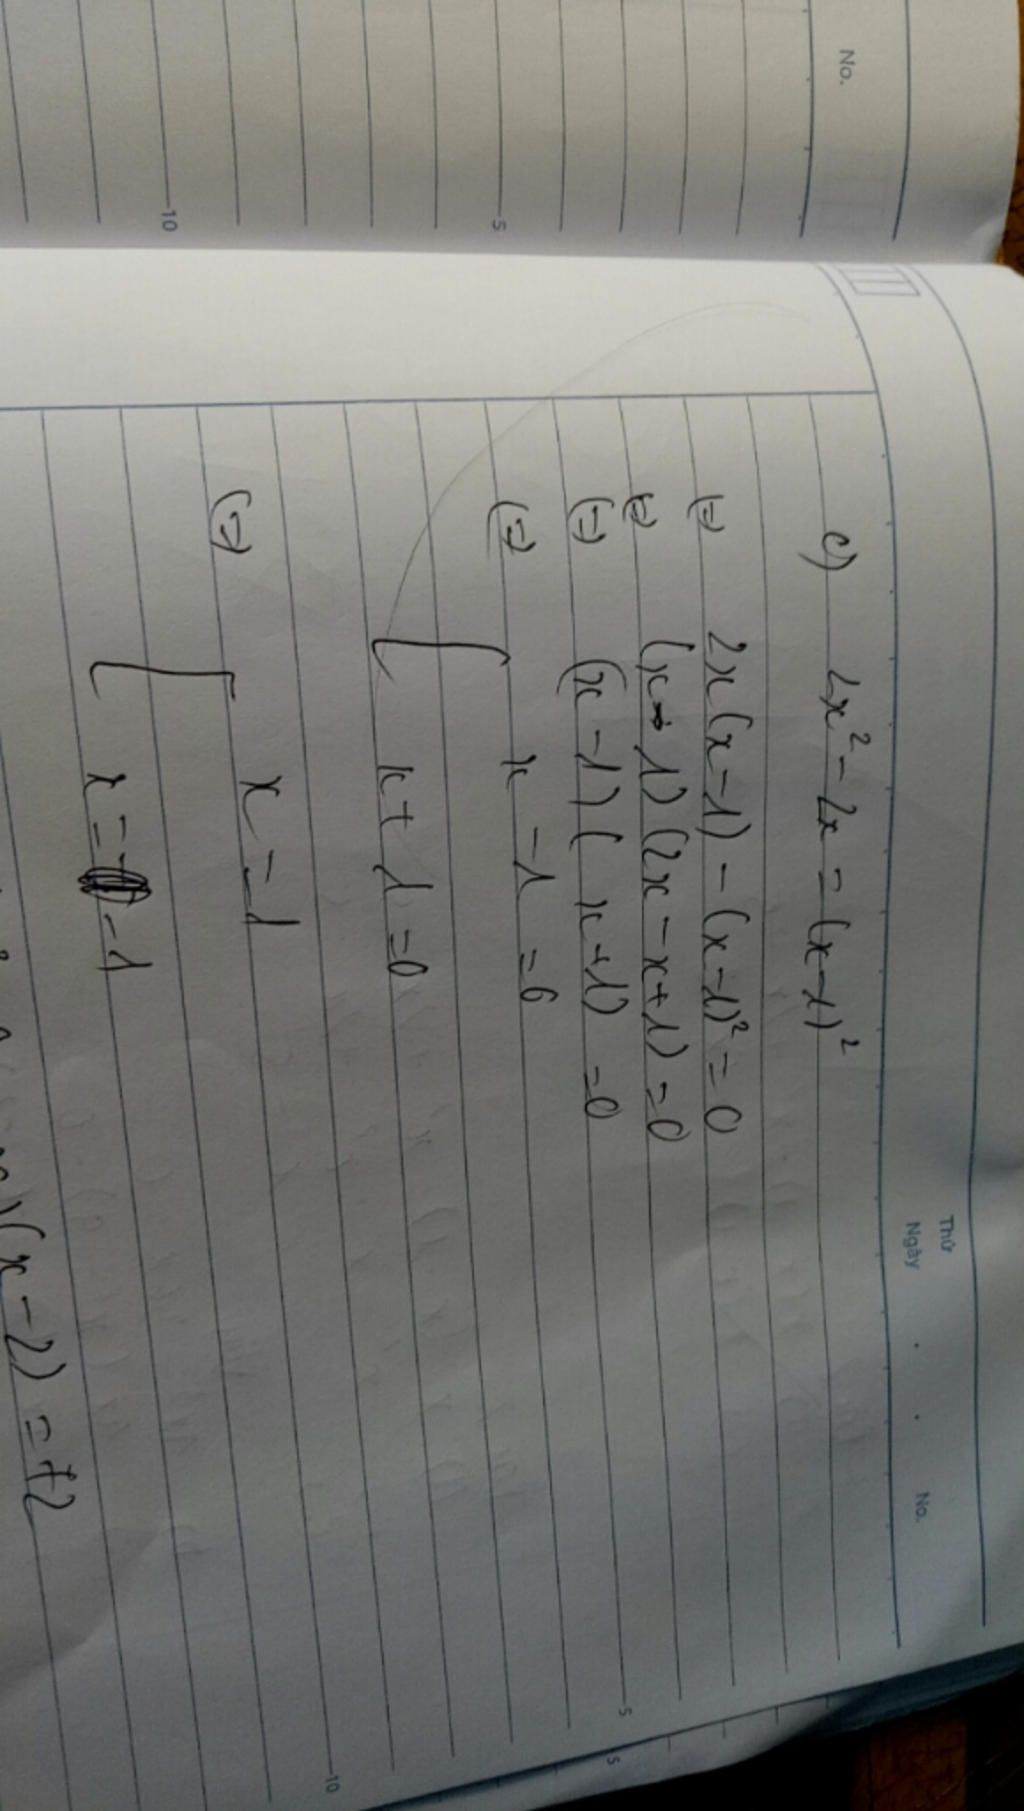 No.
5
10
Thứ
Ngày . . No.
c) 2x² - 2x = (x-1)²
(=) 2x(x-1) - (x-1)² = 0
(=) (x-1)(2x-x+1) = 0
(=) (x-1)(x+1) = 0
(=) [ x-1 = 0
x+1 = 0
(=) [ x = 1
x = -1
(x-2) = 12
5
5
10